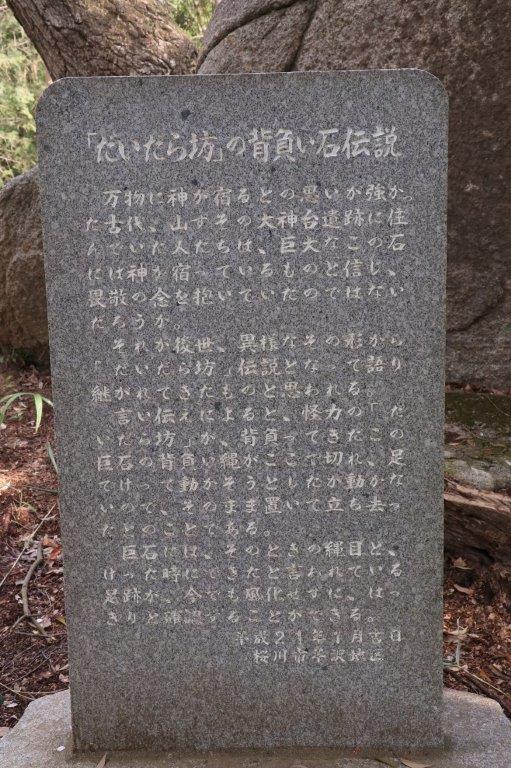 「だいだら坊」の背負い石伝説
万物に神が宿るとの思いが強かっ
た古代、山すその大神台遺跡に住
んでいた人たちは、巨大なこの石
には神が宿っているものと信じ、
畏敬の念を抱いていたのではない
だろうか。
それが後世、異様なその形から
「だいだら坊」伝説となり語り
継がれてきたものと思われる。
言い伝えによると、怪力の「だ
いだら坊」が、背
巨石の背負い縄がここで切れ、足
そのまま置いて立ち去っ
たとのことである。
巨石には、そのときの縄目と、
けった時にできたと言われている
足跡が、今でも風化せずに、はっ
きりと確認することができる。
平成21年1月吉日
桜川市平沢地区